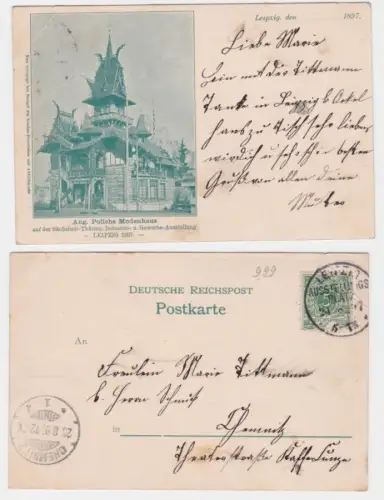 Leipzig, den 1897.
Liebe Marie
Bin mit der Tittmann
Tante in Leipzig b. Onkel
Hans zu Tisch sehr liebens
würdig u. schicken besten
Gruß von allen deine
Mutter
Aug. Polichs Modenhaus
auf der Sächsisch-Thüring. Industrie- u. Gewerbe-Ausstellung
— LEIPZIG 1897. —
999
DEUTSCHE REICHSPOST
Postkarte
LEIPZIG
AUSSTELLUNGS
PLATZ
An
Fräulein Marie Tittmann
b. Herrn Schmidt
in Chemnitz
Theaterstraße
CHEMNITZ
1